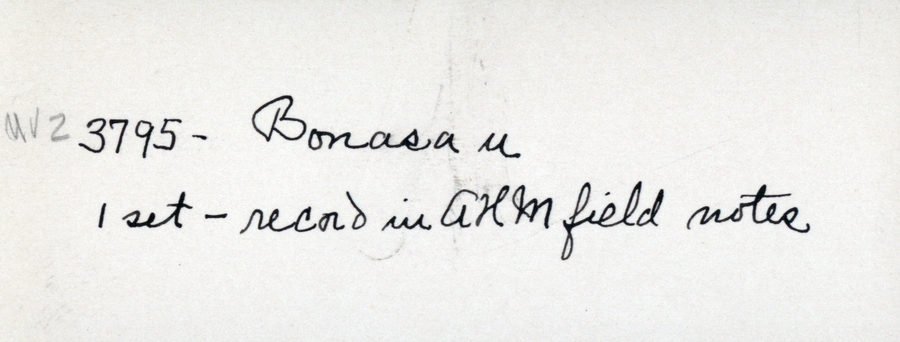 MVZ 3795- Bonasa u.
1 set - record in AHM field notes